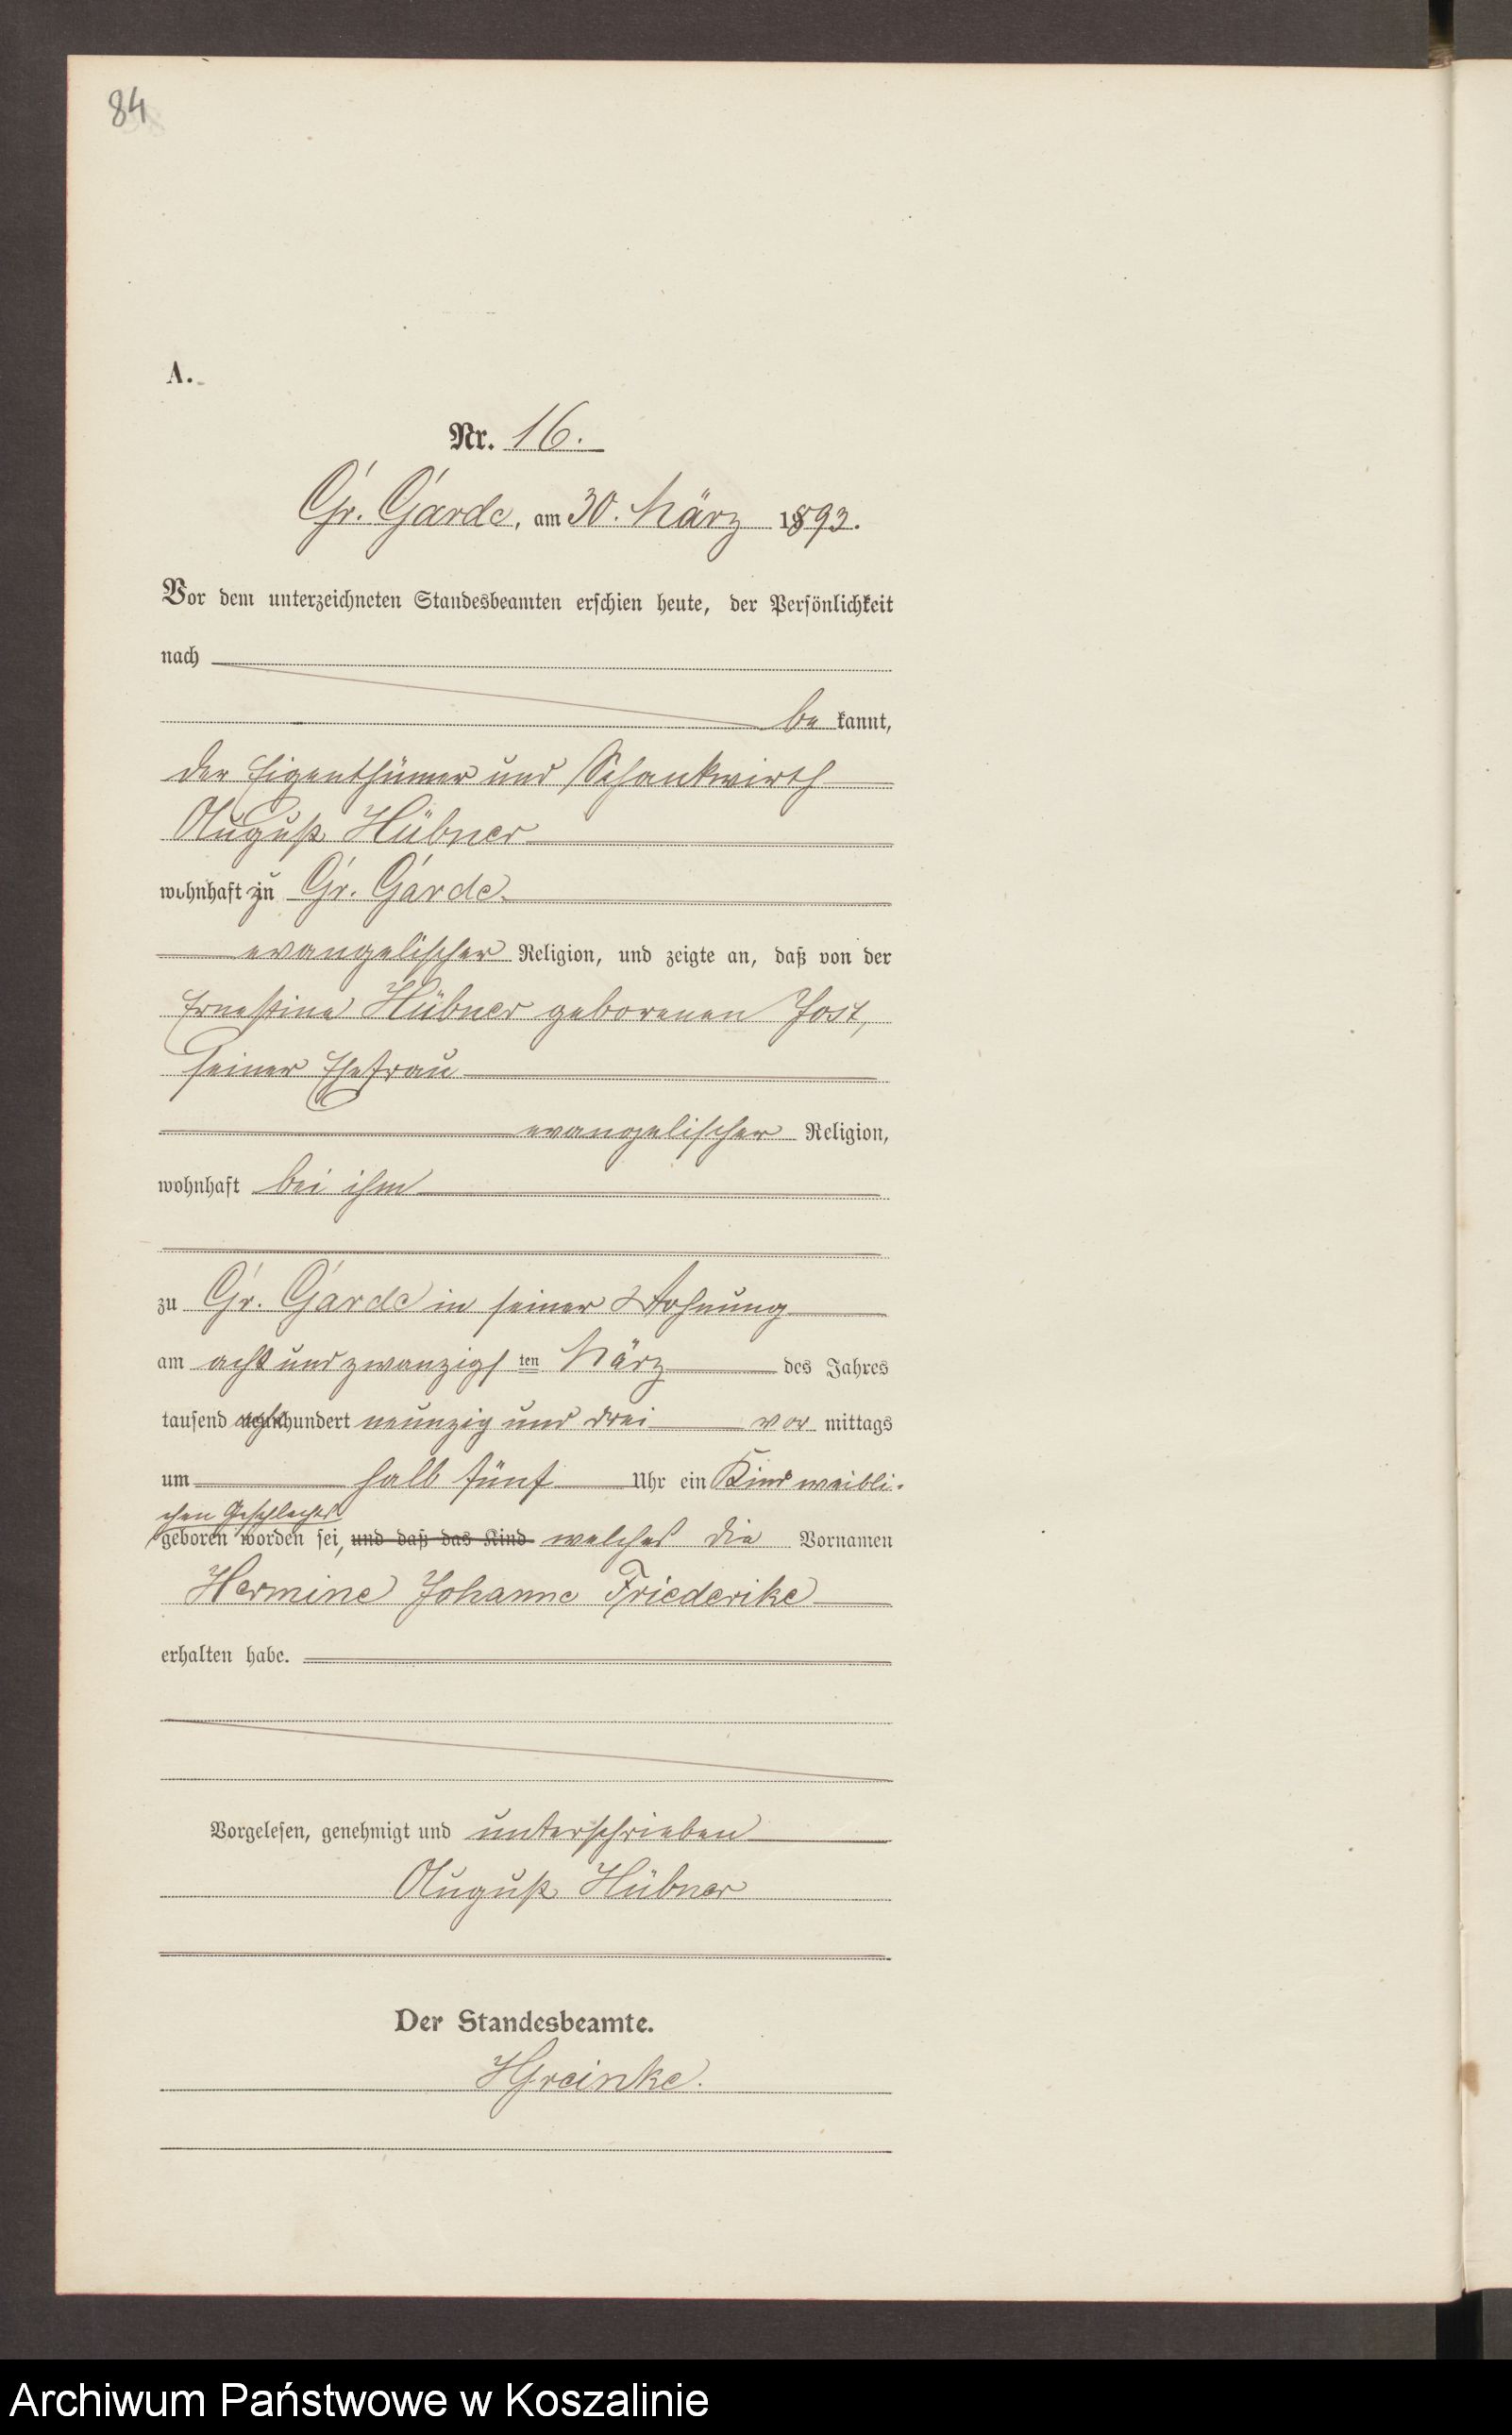 84
A.
Nr. 16.
Gr. Garde, am 30. März 1893.
Vor dem unterzeichneten Standesbeamten erschien heute, der Persönlichkeit
nach
be kannt,
der Eigenthümer und Schankwirth
August Hübner
wohnhaft zu Gr. Garde.
evangelischer Religion, und zeigte an, daß von der
Ernestine Hübner geborenen Jost,
seiner Ehefrau
evangelischer Religion,
wohnhaft bei ihm
zu Gr. Garde in seiner Wohnung
am acht und zwanzigsten März des Jahres
tausend achthundert neunzig und drei vor mittags
um halb fünf Uhr ein Kind weibli-
chen Geschlechts
geboren worden sei, und daß das Kind welches die Vornamen
Hermine Johanne Friederike
erhalten habe.
Vorgelesen, genehmigt und unterschrieben
August Hübner
Der Standesbeamte.
Archiwum Państwowe w Koszalinie